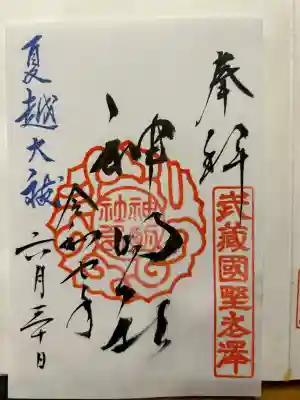 奉拝
武蔵國野老澤
神明社
令和七年
六月三十日
夏越大祓